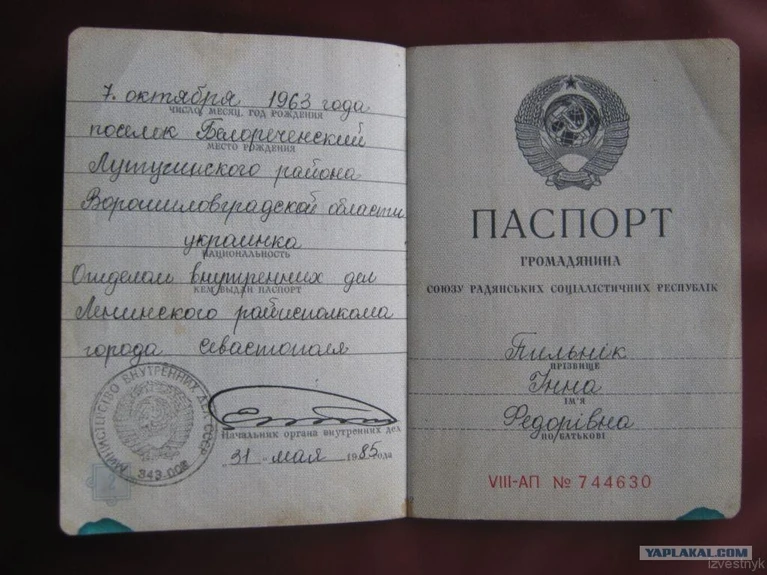 7. октября 1963 года
ЧИСЛО, МЕСЯЦ, ГОД РОЖДЕНИЯ
поселок Белореченский
МЕСТО РОЖДЕНИЯ
Лутугинского района
Ворошиловградской области
украинка
НАЦИОНАЛЬНОСТЬ
Отделом внутренних дел
КЕМ ВЫДАН ПАСПОРТ
Ленинского райисполкома
города Севастополя
МИНИСТЕРСТВО ВНУТРЕННИХ ДЕЛ СССР
343-008
Начальник органа внутренних дел
31 мая 1985 года
ПАСПОРТ
ГРОМАДЯНИНА
СОЮЗУ РАДЯНСЬКИХ СОЦІАЛІСТИЧНИХ РЕСПУБЛІК
Пильнік
ПРІЗВИЩЕ
Інна
ІМ'Я
Федорівна
ПО БАТЬКОВІ
VIII-АП № 744630
YAPLAKAL.COM
izvestnyk